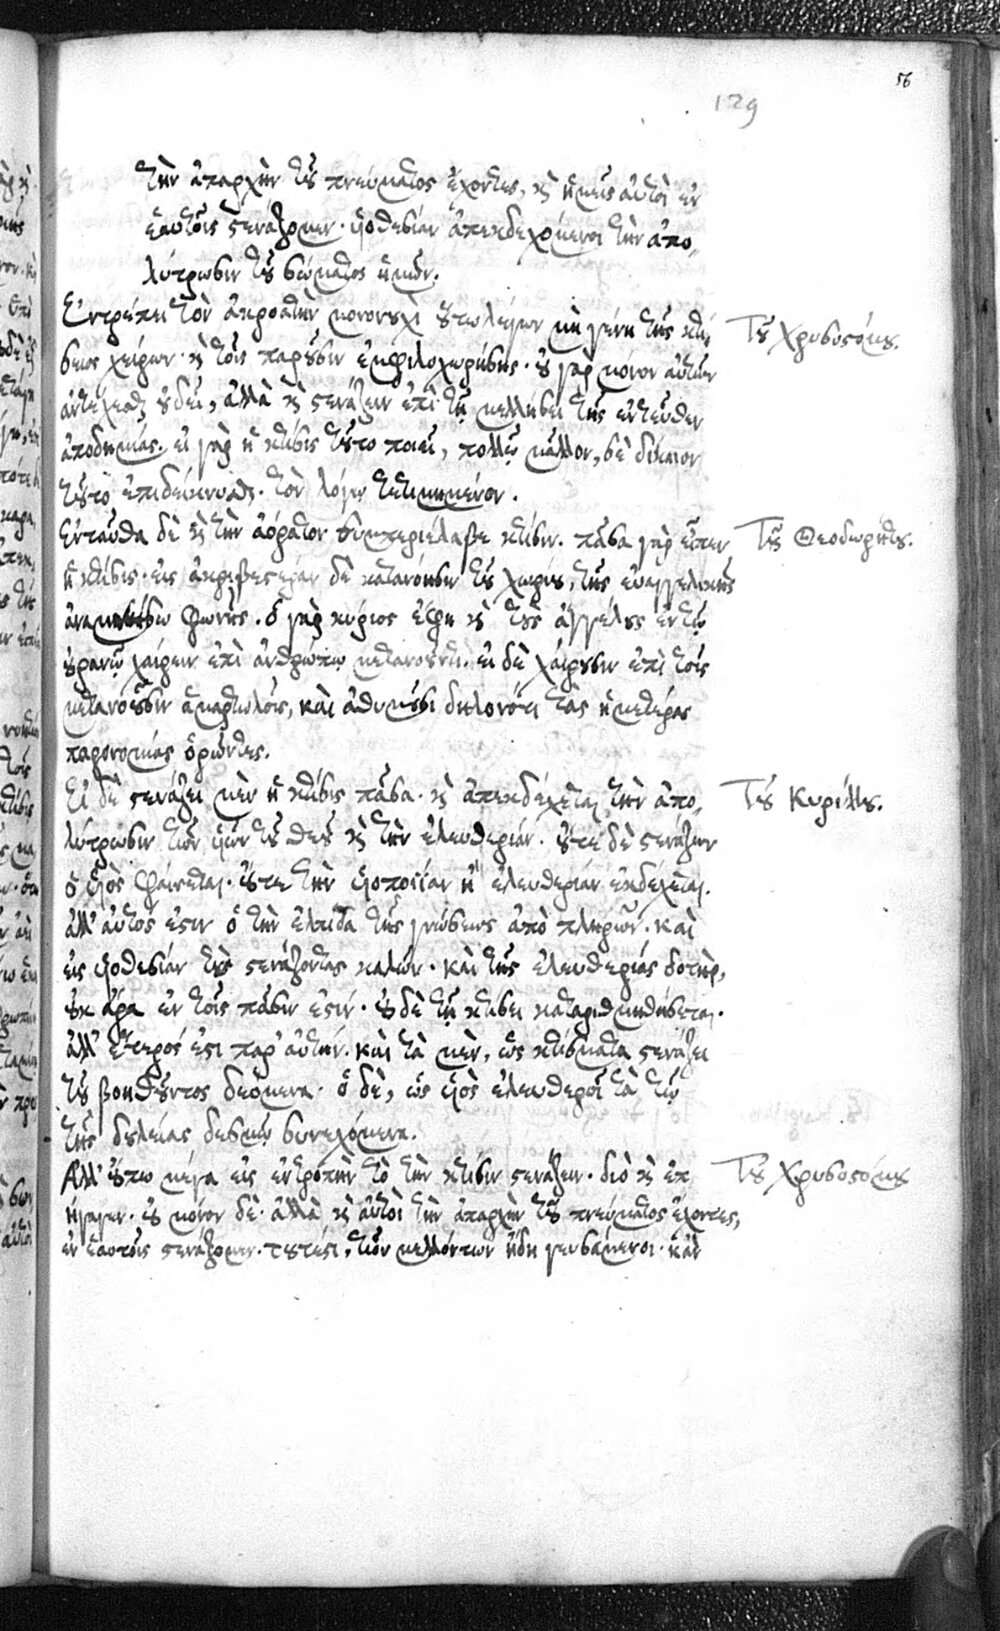 56
129
τὴν ἀπαρχὴν τοῦ πνεύματος ἔχοντες, καὶ ἡμεῖς αὐτοὶ ἐν
ἑαυτοῖς στενάζομεν· υἱοθεσίαν ἀπεκδεχόμενοι τὴν ἀπο,
λύτρωσιν τοῦ σώματος ἡμῶν.
Ἐντρέπει τὸν ἀκροατὴν μονονουχὶ οὕτω λέγων μὴ γένη τῆς κτί,
σεως χείρων· καὶ τοῖς παροῦσιν ἐμφιλοχωρήσῃς· οὐ γὰρ μόνον αὐτῶν
ἀντέχεσθαι οὐ δεῖ, ἀλλὰ καὶ στενάζειν ἐπὶ τῇ μελλήσει τῆς ἐντεῦθεν
ἀποδημίας. εἰ γὰρ ἡ κτίσις τοῦτο ποιεῖ, πολλῷ μᾶλλον, σὲ δίκαιον
τοῦτο ἐπιδείκνυσθαι. τὸν λόγῳ τετιμημένον.
Τοῦ Χρυσοστόμου.
Ἐνταῦθα δὲ καὶ τὴν ἀόρατον συμπεριέλαβε κτίσιν. πᾶσα γὰρ εἶπεν
ἡ κτίσις· εἰς ἀκριβεστέραν δὲ κατανόησιν τοῦ χωρίου, τῆς εὐαγγελικῆς
ἀναμνήσω φωνῆς. ὁ γὰρ κύριος ἔφη καὶ τοὺς ἀγγέλους ἐν τῷ
οὐρανῷ χαίρειν ἐπὶ ἀνθρώπῳ μετανοοῦντι. εἰ δὲ χαίρουσιν ἐπὶ τοῖς
μετανοοῦσιν ἁμαρτωλοῖς, καὶ ἀθυμοῦσι δηλονότι τὰς ἡμετέρας
παρανομίας ὁρῶντες.
Τοῦ Θεοδωρήτου.
Εἰ δὲ στενάζει μὲν ἡ κτίσις πᾶσα· καὶ ἀπεκδέχεται τὴν ἀπο,
λύτρωσιν τῶν υἱῶν τοῦ θεοῦ καὶ τὴν ἐλευθερίαν. οὔτε δὲ στενάζων
ὁ υἱὸς φαίνεται. οὔτε τὴν υἱοποιΐαν ἢ ἐλευθερίαν ἐκδέχεται.
ἀλλ' αὐτός ἐστιν ὁ τὴν ἐλπίδα τῆς γνώσεως ἀποπληρῶν. καὶ
εἰς υἱοθεσίαν τοὺς στενάζοντας καλῶν. καὶ τῆς ἐλευθερίας δοτὴρ,
οὐκ ἄρα ἐν τοῖς πᾶσίν ἐστίν. οὐδὲ τῇ κτίσει καταριθμηθήσεται.
ἀλλ' ἕτερός ἐστι παρ' αὐτήν. καὶ τὰ μὲν, ὡς κτίσματα στενάζει
τοῦ βοηθοῦντος δεόμενα· ὁ δὲ, ὡς υἱὸς ἐλευθεροῖ τὰ τῷ
τῆς δουλείας δεσμῷ συνεχόμενα.
Τοῦ Κυρίλλου.
Ἀλλ' οὔπω μέγα εἰς ἐντροπὴν τὸ τὴν κτίσιν στενάζειν· διὸ καὶ ἐπ
ήγαγεν· οὐ μόνον δὲ· ἀλλὰ καὶ αὐτοὶ τὴν ἀπαρχὴν τοῦ πνεύματος ἔχοντες,
ἐν ἑαυτοῖς στενάζομεν. τουτέστι, τῶν μελλόντων ἤδη γευσάμενοι. κἂν
Τοῦ Χρυσοστόμου